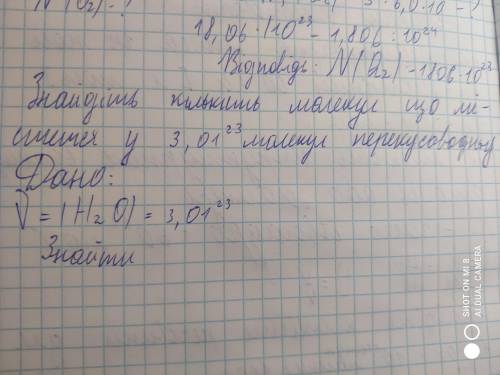 N(O₂)-?
18,06·10²³ - 1,806·10²⁴
Відповідь: N(O₂) - 1806·10²³
Знайдіть кількить молекул що мі-
стется у 3,01²³ молекул
Дано:
= (H₂O) = 3,01²³
Знайти
SHOT ON MI 8
AI DUAL CAMERA